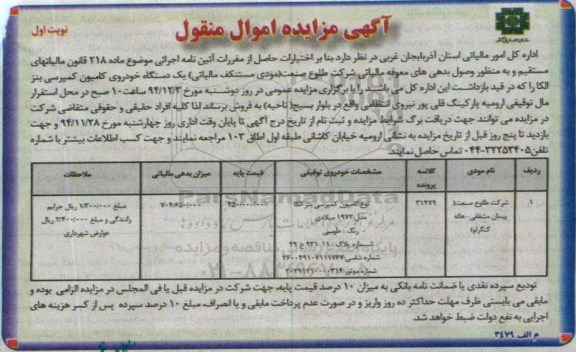 آگهی مزایده اموال منقول
نوبت اول
اداره کل امور مالیاتی استان آذربایجان غربی در نظر دارد بنا بر اختیارات حاصل از مقررات آئین نامه اجرائی موضوع ماده ۲۱۸ قانون مالیاتهای
مستقیم و به منظور وصول بدهی های معوقه مالیاتی شرکت طلوع صنعت(مودی مستنکف مالیاتی) یک دستگاه خودروی کامیون کمپرسی بنز
الکا را که در قید بازداشت این اداره کل می باشد را با برگزاری مزایده عمومی در روز دوشنبه مورخ ۹۴/۱۲/۳ ساعت ۱۰ صبح در محل استقرار
مال توقیفی ارومیه پارکینگ قلی پور نیروی انتظامی واقع در بلوار بسیج(ناحیه) به فروش برساند لذا کلیه افراد حقیقی و حقوقی متقاضی شرکت
در مزایده می توانند جهت دریافت برگ شرایط مزایده و ثبت نام از تاریخ درج آگهی تا پایان وقت اداری روز چهارشنبه مورخ ۹۴/۱۱/۲۸ و جهت
بازدید تا پنج روز قبل از تاریخ مزایده به نشانی ارومیه خیابان کاشانی طبقه اول اطاق ۱۰۳ مراجعه نمایند و جهت کسب اطلاعات بیشتر با شماره
تلفن ۳۲۲۵۳۴۰۵-۰۴۴ تماس حاصل نمایند.
ردیف نام مودی کلاسه پرونده مشخصات خودروی توقیفی قیمت پایه میزان بدهی مالیاتی ملاحظات
۱ شرکت طلوع صنعت ۳۱۴۷۹ نوع کامیون کمپرسی بنز مبلغ ۱/۳۰۰/۰۰۰ ریال جرایم
پیمان مشفقی مدل ۱۹۷۳ میلادی رانندگی و مبلغ ۲/۴۰۰/۰۰۰ ریال
رنگ: طوسی عوارض شهرداری
شماره پلاک
شماره شاسی
شماره موتور
تودیع سپرده نقدی یا ضمانت نامه بانکی به میزان ۱۰ درصد قیمت پایه، جهت شرکت در مزایده قبل یا فی المجلس در مزایده الزامی بوده و
مابقی می بایستی ظرف مهلت حداکثر ده روز واریز و در صورت عدم پرداخت مابقی و یا انصراف، مبلغ ۱۰ درصد سپرده پس از کسر هزینه های
اجرایی به نفع دولت ضبط خواهد شد.
م الف ۳۴۷۹